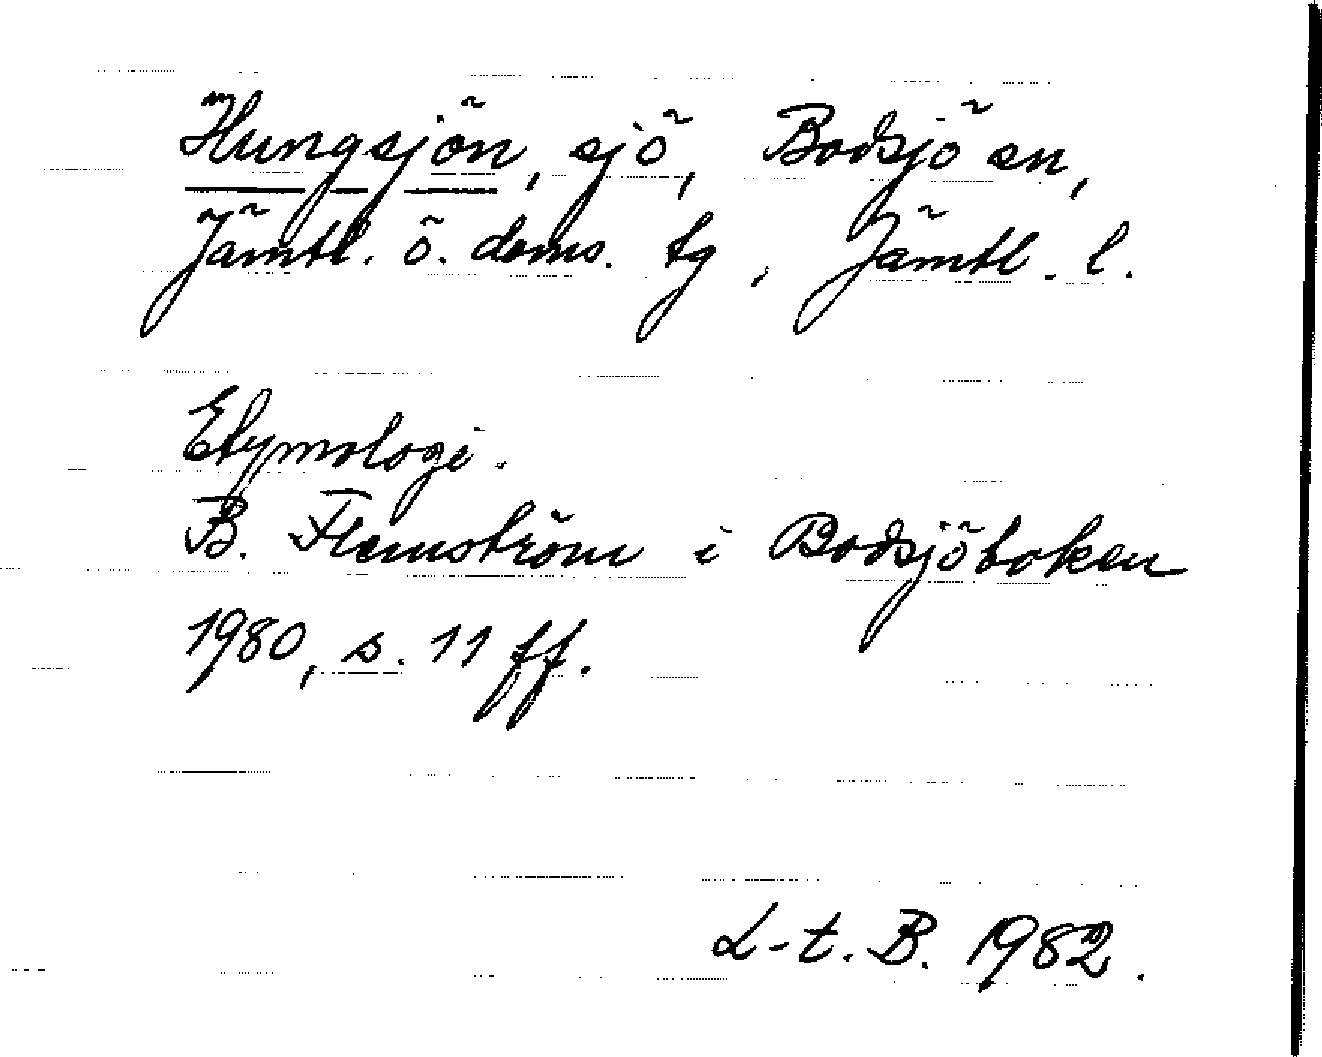 Hungsjön, sjö, Bodsjö sn,
Jämtl. ö. doms. tg, Jämtl. l.
Etymologi.
B. Flemström i Bodsjöboken
1980, s. 11 ff.
L-t. B. 1982.